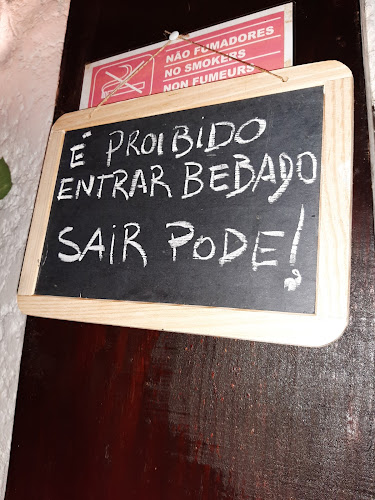 NÃO FUMADORES
NO SMOKERS
NON FUMEURS
É PROIBIDO
ENTRAR BEBADO
SAIR PODE!